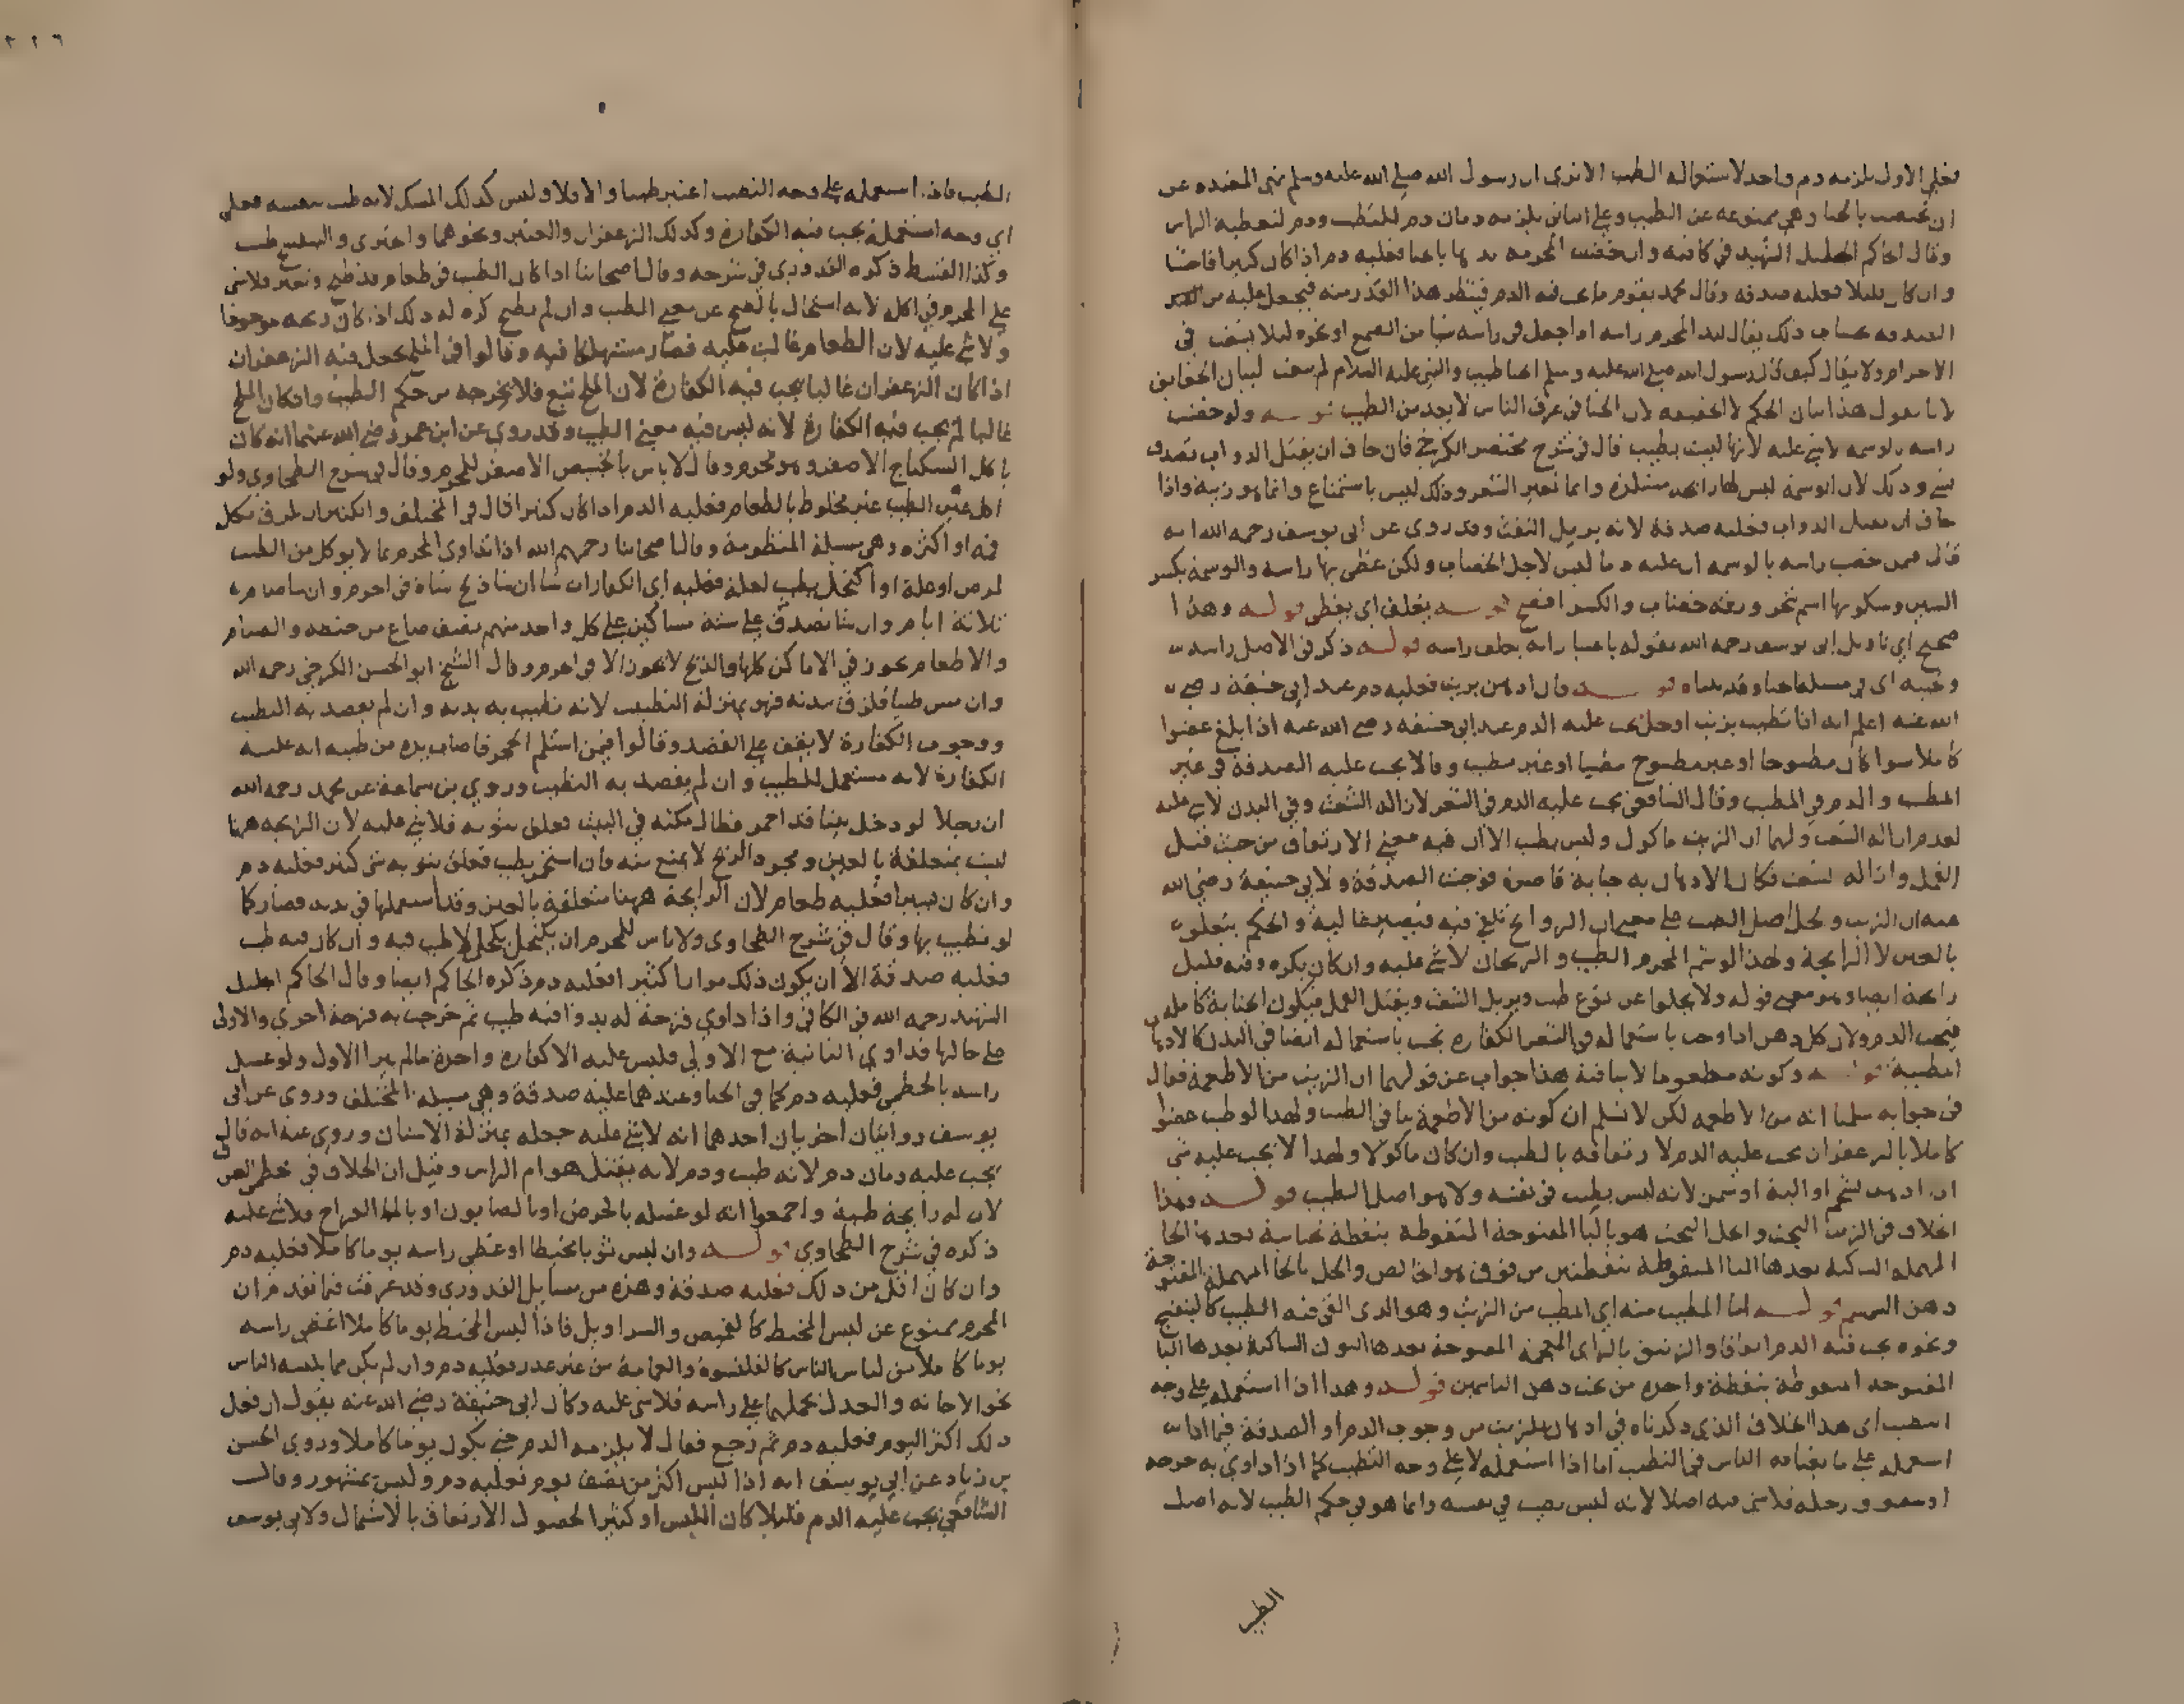 فعلى الاول يلزمه دم واحد لاستعماله الطيب الا ترى ان رسول الله صلى الله عليه وسلم نهى المعتده عن
ان تختضب بالحنا وهي ممنوعه عن الطيب وعلى الثانى يلزمه دمان دم للتطيب ودم لتغطيه الراس
وقال الحاكم الجليل الشهيد في كافيه وان خضبت المحرمه يديها بالحنا فعليه دم اذا كان كثيرا فاحشا
وان كان قليلا فعليه صدقه وقال محمد يقوم ما يجب فيه الدم فينظر هذا القدر منه فيجعل عليه من
الصدقه بحساب ذلك يقال لبد المحرم راسه اذا جعل في راسه شيا من الصمغ او نحوه ليلا يشعث في
الاحرام ولا يقال كيف قال رسول الله صلى الله عليه وسلم الحنا طيب والنبي عليه السلام لم يبعث لبيان الحقايق
لانا نقول هذا بيان الحكم لا الحقيقه لان الحنا في عرف الناس لا يعد من الطيب قوله ولو خضب
راسه بالوسمه لا شي عليه لانها ليست بطيب قال في شرح مختصر الكرخي فان خاف ان يقتل الدواب تصدق
بشي وذلك لان الوسمة ليس لها رائحه مستلذه وانما تغير الشعر وذلك ليس باستمتاع وانما هو زينة واذا
خاف ان يقتل الدواب فعليه صدقة لانه يزيل التفث وقد روى عن ابى يوسف رحمه الله انه
قال فيمن خضب راسه بالوسمه ان عليه دما ليس لاجل الخضاب ولكن غطى بها راسه والوسمة بكسر
السين وسكونها اسم شجر ورقه خضاب والكسر افصح قوله يغلف اي يغطى قوله وهذا
صحيح اي تاويل ابى يوسف رحمه الله بقوله باعتبار انه يغلف راسه قوله ذكر في الاصل راسه
ولحيته اى في مسلة الحنا وقد بيناه قوله فان ادهن بزيت فعليه دم عند ابى حنيفة رضي
الله عنه اعلم انه اذا تطيب بزيت او خل يجب عليه الدم عند ابى حنيفه رضي الله عنه اذا بلغ عضوا
كاملا سوا كان مطبوخا او غير مطبوخ مطيبا او غير مطيب وقالا يجب عليه الصدقة في غير
المطيب والدم في المطيب وقال الشافعي يجب عليه الدم في الشعر لازاله الشعث وفي البدن لا شي عليه
لعدم ازاله الشعث ولهما ان الزيت ماكول وليس بطيب الا ان فيه معنى الارتفاق من حيث قتل
القمل وازاله الشعث فكان الادهان به جناية قاصرة فوجبت الصدقة ولابي حنيفة رضي الله
عنه ان الزيت والخل اصل الطيب على معنى ان الروائح تلقى فيه فيصير غالية والحكم يتعلق
بالعين لا الرايحة ولهذا لو شم المحرم الطيب والريحان لا شي عليه وان كان يكره وفيه قليل
رائحة ايضا وهو معنى قوله ولا يخلوا عن نوع طيب ويزيل الشعث ويقتل القمل فيكون الجناية كامله
فيجب الدم ولان كل دهن اذا وجب باستعماله في الشعر الكفاره يجب باستعماله ايضا في البدن كالادهان
المطيبة قوله وكونه مطعوما لا ينافيه هذا جواب عن قولهما ان الزيت من الاطعمة فقال
في جوابه سلمنا انه من الاطعمه لكن لا نسلم ان كونه من الاطعمة ينافي الطيب ولهذا لو طيب عضوا
كاملا بالزعفران يجب عليه الدم لارتفاقه بالطيب وان كان ماكولا ولهذا لا يجب عليه شي
ان ادهن بشحم او الية او سمن لانه ليس بطيب في نفسه ولا هو اصل الطيب قوله وهذا
الخلاف في الزيت البحت والخل البحت هو بالبا المفتوحة المنقوطة بنقطة تحتانية بعدها الحا
المهملة الساكنة بعدها التا المنقوطة بنقطتين من فوق هو الخالص والحل بالحا المهملة المفتوحة
دهن السمسم قوله اما المطيب منه اي المطيب من الزيت وهو الذى القى فيه الطيب كالبنفسج
ونحوه يجب فيه الدم اتفاقا والزنبق بالزاى المعجمة المفتوحة بعدها النون الساكنة بعدها البا
المفتوحه المنقوطة بنقطة واحده من تحت دهن الياسمين قوله وهذا اذا استعمله على وجه
التطيب اى هذا الخلاف الذي ذكرناه في ادهان الزيت من وجوب الدم او الصدقة فيما اذا
استعمله على ما يعتاده الناس في التطيب اما اذا استعمله لا على وجه التطيب كما اذا داوي به جرحه
او شقوق رجله فلا شى فيه اصلا لانه ليس بطيب في نفسه وانما هو في حكم الطيب لانه اصل
الطيب
الطيب فاذا استعمله على وجه التطيب اعتبر طيبا والا فلا وليس كذلك المسك لانه طيب بنفسه فعلى
اي وجه استعمله يجب فيه الكفارة وكذلك الزعفران والعنبر ونحوهما
وكذا القسط ذكره القدوري في شرحه وقال اصحابنا اذا كان الطيب في طعام قد طبخ وتغير فلا شى
على المحرم في اكله لانه استحال بالطبخ عن معنى الطيب وان لم يطبخ كره له ذلك اذا كان ريحه موجودا
ولا شي عليه لان الطعام غالب عليه فصار مستهلكا فيه وقالوا في الملح يجعل فيه الزعفران
اذا كان الزعفران غالبا يجب فيه الكفارة لان الملح تبع فلا يخرجه من حكم الطيب وان كان الملح
غالبا لم يجب فيه الكفارة لانه ليس فيه معنى الطيب وقد روي عن ابن عمر رضي الله عنهما انه كان
ياكل السكباج الاصفر وهو محرم وقال لا باس بالخبيص الاصفر للمحرم وقال في شرح الطحاوي ولو
اكل عين الطيب غير مخلوط بالطعام فعليه الدم اذا كان كثيرا قال في المختلف والكثير ان لزق بكل
فيه او اكثره وهي مسيلة المنظومة وقال اصحابنا رحمهم الله اذا تداوى المحرم بما لا يوكل من الطيب
لمرض او علة او اكتحل بطيب لعلة فعليه اي الكفارات شا ان شا ذبح شاة في الحرم وان شا صام
ثلاثة ايام وان شا تصدق على ستة مساكين على كل واحد منهم نصف صاع من حنطه والصيام
والاطعام يجوز في الاماكن كلها والذبح لا يجوز الا في الحرم وقال الشيخ ابو الحسن الكرخي رحمه الله
وان مس طيبا فلزق ببدنه فهو بمنزلة التطيب لانه تطيب به بدنه وان لم يقصد به التطيب
ووجوب الكفارة لا يقف على القصد وقالوا فيمن استلم الحجر فاصاب يده من طيبه انه عليه
الكفارة لانه مستعمل للطيب وان لم يقصد به التطيب وروي بن سماعة عن محمد رحمه الله
ان رجلا لو دخل بيتا قد اجمر فطال مكثه في البيت فعلق بثوبه فلا شي عليه لان الرايحه ههنا
ليست متعلقة بالعين ومجرد الريح لا يمنع منه فان استجمر بطيب فعلق بثوبه شى كثير فعليه دم
وان كان يسيرا فعليه طعام لان الرايحة ههنا متعلقة بالعين وقد استعملها في بدنه فصار كما
لو تطيب بها وقال في شرح الطحاوى ولا باس للمحرم ان يكتحل بكحل لا طيب فيه وان كان فيه طيب
فعليه صدقة الا ان يكون ذلك مرارا كثيرا فعليه دم ذكره الحاكم ايضا وقال الحاكم الجليل
الشهيد رحمه الله في الكافي واذا داوي قرحة له بدوا فيه طيب ثم خرجت به قرحة اخرى والاولى
على حالها فداوي الثانية مع الاولى فليس عليه الا كفارة واحدة ما لم يبرا الاول ولو غسل
راسه بالخطمي فعليه دم كما في الحنا وعندهما عليه صدقة وهي مسيله المختلف وروى عن ابى
يوسف روايتان اخريان احدهما انه لا شي عليه جعله بمنزلة الاشنان وروي عنه انه قال
يجب عليه دمان دم لانه طيب ودم لانه يقتل هوام الراس وقيل ان الخلاف في خطمى العراق
لان له رايحة طيبة واجمعوا انه لو غسله بالحرض او بالصابون او بالما القراح فلا شي عليه
ذكره في شرح الطحاوي قوله وان لبس ثوبا مخيطا او غطى راسه يوما كاملا فعليه دم
وان كان اقل من ذلك فعليه صدقة وهذه من مسايل القدورى وقد عرفت فيما تقدم ان
المحرم ممنوع عن لبس المخيط كالقميص والسراويل فاذا لبس المخيط يوما كاملا او غطى راسه
يوما كاملا من لباس الناس كالقلنسوة والعمامة من غير عذر فعليه دم وان لم يكن مما يلبسه الناس
نحو الاجانه والعدل يحملهما على راسه فلا شى عليه وكان ابى حنيفة رضي الله عنه يقول ان فعل
ذلك اكثر اليوم فعليه دم ثم رجع فقال لا يلزمه الدم حتى يكون يوما كاملا وروي الحسن
بن زياد عن ابي يوسف انه اذا لبس اكثر من نصف يوم فعليه دم وليس بمشهور وقال
الشافعي يجب عليه الدم قليلا كان اللبس او كثيرا لحصول الارتفاق بالاشتمال ولابي يوسف